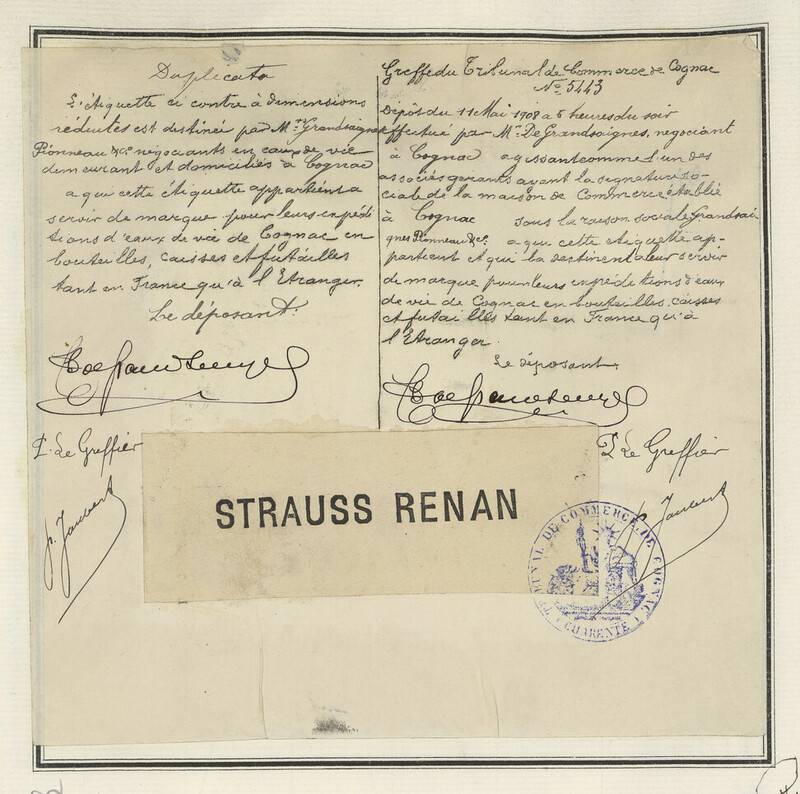 Duplicata
L'étiquette ci contre à dimensions
réduites est destinée par Mrs Grandsaignes
Pionneau & Co négociants en eaux de vie
demeurant et domiciliés à Cognac
a qui cette étiquette appartient a
servir de marque pour leurs expédi
tions d'eaux de vie de Cognac en
bouteilles, caisses et futailles
tant en France qu'à l'Etranger.
Le déposant.
P. Le Greffier
Greffe du Tribunal de Commerce de Cognac
No 5443
Dépôt du 11 Mai 1908 a 5 heures du soir
effectué par Mr. De Grandsaignes, negociant
à Cognac agissant comme l'un des
associés gerants ayant la signature so-
ciale de la maison de Commerce établie
à Cognac sous la raison sociale Grandsai
gnes Pionneau & Co. a qui cette etiquette ap-
partient et qui la destinent a leur servir
de marque pour leurs expéditions d'eaux
de vie de Cognac en bouteilles, caisses
et futailles tant en France qu'à
l'Etranger.
Le déposant.
P. Le Greffier
STRAUSS RENAN
TRIBUNAL DE COMMERCE DE COGNAC
(CHARENTE)